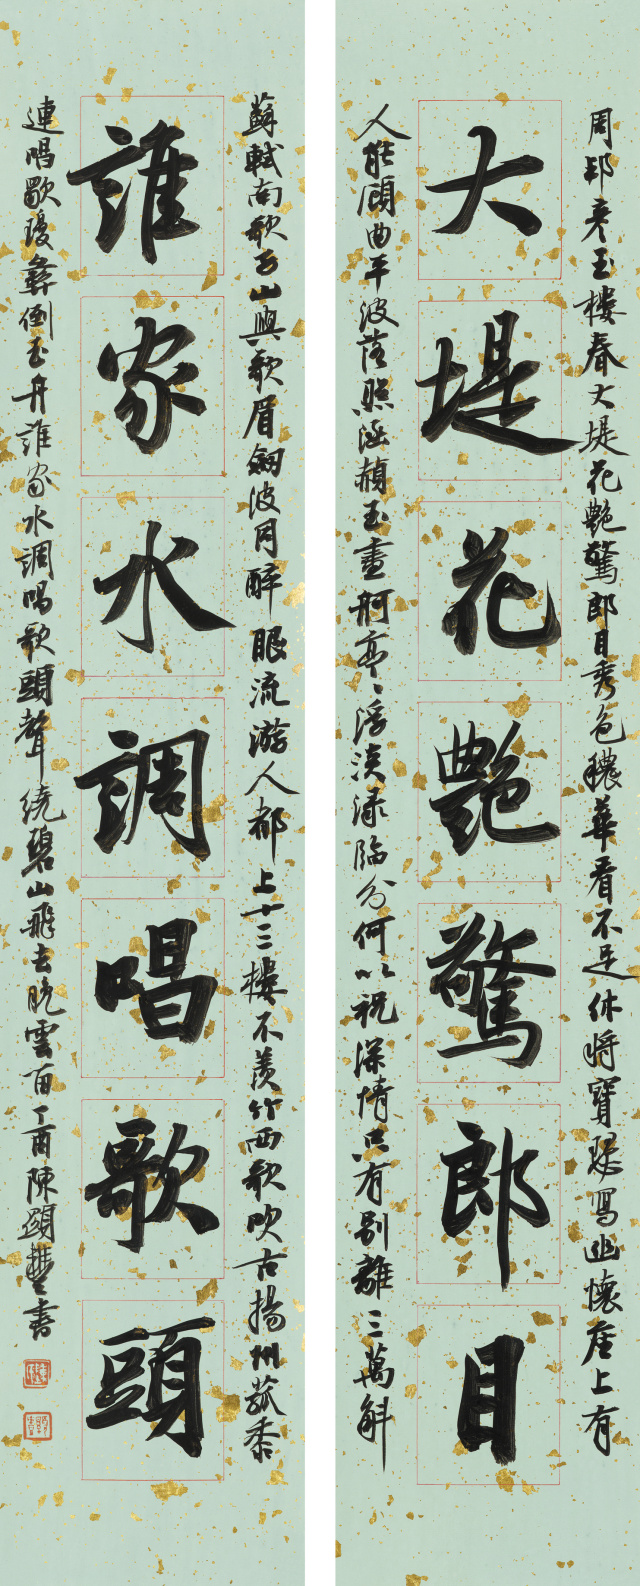 周邦彥玉樓春大堤花艷驚郎目秀色穠華看不足休將寶瑟寫幽懷座上有
大堤花艷驚郎目
人能顧曲平波落照涵赬玉畫舸亭亭浮淡淥臨分何以祝深情只有別離三萬斛
蘇軾南歌子山與歌眉斂波同醉眼流游人都上十三樓不羨竹西歌吹古揚州菰黍
誰家水調唱歌頭
連唱歜瓊彝倒玉舟誰家水調唱歌頭聲繞碧山飛去晚雲留丁酉陳顯豐書